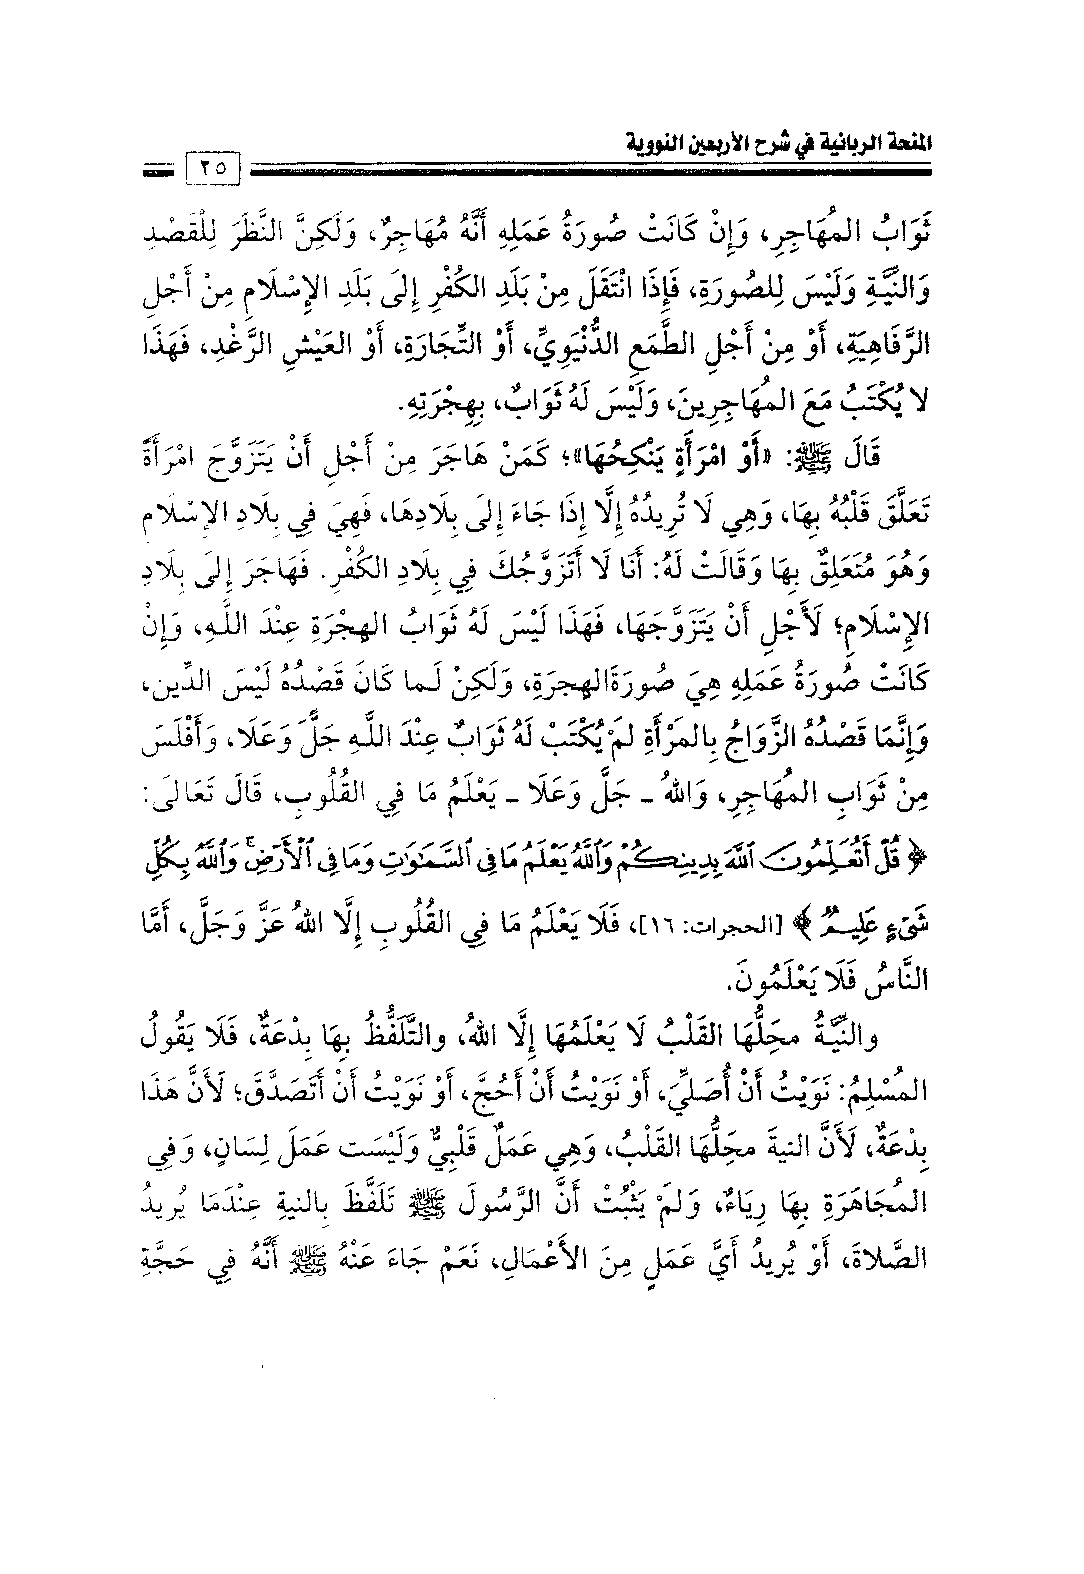 المنحة الربانية في شرح الأربعين النووية
٢٥
ثَوَابُ المُهَاجِرِ، وَإِنْ كَانَتْ صُورَةُ عَمَلِهِ أَنَّهُ مُهَاجِرٌ، وَلَكِنَّ النَّظَرَ لِلْقَصْدِ
وَالنِّيَّةِ وَلَيْسَ لِلصُورَةِ، فَإِذَا انْتَقَلَ مِنْ بَلَدِ الكُفْرِ إِلَى بَلَدِ الإِسْلَامِ مِنْ أَجْلِ
الرَّفَاهِيَةِ، أَوْ مِنْ أَجْلِ الطَّمَعِ الدُّنْيَوِيِّ، أَوْ التِّجَارَةِ، أَوْ العَيْشِ الرَّغْدِ، فَهَذَا
لا يُكْتَبُ مَعَ المُهَاجِرِينَ، وَلَيْسَ لَهُ ثَوَابٌ، بِهِجْرَتِهِ.
قَالَ ﷺ: «أَوْ امْرَأَةٍ يَنْكِحُهَا»؛ كَمَنْ هَاجَرَ مِنْ أَجْلِ أَنْ يَتَزَوَّجَ امْرَأَةً
تَعَلَّقَ قَلْبُهُ بِهَا، وَهِي لَا تُرِيدُهُ إِلَّا إِذَا جَاءَ إِلَى بِلَادِهَا، فَهِيَ فِي بِلَادِ الإِسْلَامِ
وَهُوَ مُتَعَلِقٌ بِهَا وَقَالَتْ لَهُ: أَنَا لَا أَتَزَوَّجُكَ فِي بِلَادِ الكُفْرِ. فَهَاجَرَ إِلَى بِلَادِ
الإِسْلَامِ؛ لَأَجْلِ أَنْ يَتَزَوَّجَهَا، فَهَذَا لَيْسَ لَهُ ثَوَابُ الهِجْرَةِ عِنْدَ اللَّهِ، وَإِنْ
كَانَتْ صُورَةُ عَمَلِهِ هِيَ صُورَةَالهِجرَةِ، وَلَكِنْ لَما كَانَ قَصْدُهُ لَيْسَ الدِّين،
وَإِنَّمَا قَصْدُهُ الزَّوَاجُ بِالمَرْأَةِ لَمْ يُكْتَبْ لَهُ ثَوَابٌ عِنْدَ اللَّهِ جَلَّ وَعَلَا، وَأَفْلَسَ
مِنْ ثَوَابِ المُهَاجِرِ، وَاللهُ ـ جَلَّ وَعَلَا ـ يَعْلَمُ مَا فِي القُلُوبِ، قَالَ تَعَالَى:
﴿ قُلْ أَتُعَلِّمُونَ ٱللَّهَ بِدِينِكُمْ وَٱللَّهُ يَعْلَمُ مَا فِي ٱلسَّمَٰوَٰتِ وَمَا فِي ٱلْأَرْضِ ۚ وَٱللَّهُ بِكُلِّ
شَيْءٍ عَلِيمٌ ﴾ [الحجرات: ١٦]، فَلَا يَعْلَمُ مَا فِي القُلُوبِ إِلَّا اللهُ عَزَّ وَجَلَّ، أَمَّا
النَّاسُ فَلَا يَعْلَمُونَ.
والنِّيَّةُ مَحَلُّهَا القَلْبُ لَا يَعْلَمُهَا إِلَّا اللهُ، والتَّلَفُّظُ بِهَا بِدْعَةٌ، فَلَا يَقُولُ
المُسْلِمُ: نَوَيْتُ أَنْ أُصَلِّيَ، أَوْ نَوَيْتُ أَنْ أَحُجَّ، أَوْ نَوَيْتُ أَنْ أَتَصَدَّقَ؛ لَأَنَّ هَذَا
بِدْعَةٌ، لَأَنَّ النيةَ مَحِلُّهَا القَلْبُ، وَهِي عَمَلٌ قَلْبِيٌّ وَلَيْسَت عَمَلَ لِسَانٍ، وَفِي
المُجَاهَرَةِ بِهَا رِيَاءٌ، وَلَمْ يَثْبُتْ أَنَّ الرَّسُولَ ﷺ تَلَفَّظَ بِالنيةِ عِنْدَمَا يُرِيدُ
الصَّلَاةَ، أَوْ يُرِيدُ أَيَّ عَمَلٍ مِنَ الأَعْمَالِ، نَعَمْ جَاءَ عَنْهُ ﷺ أَنَّهُ فِي حَجَّةِ